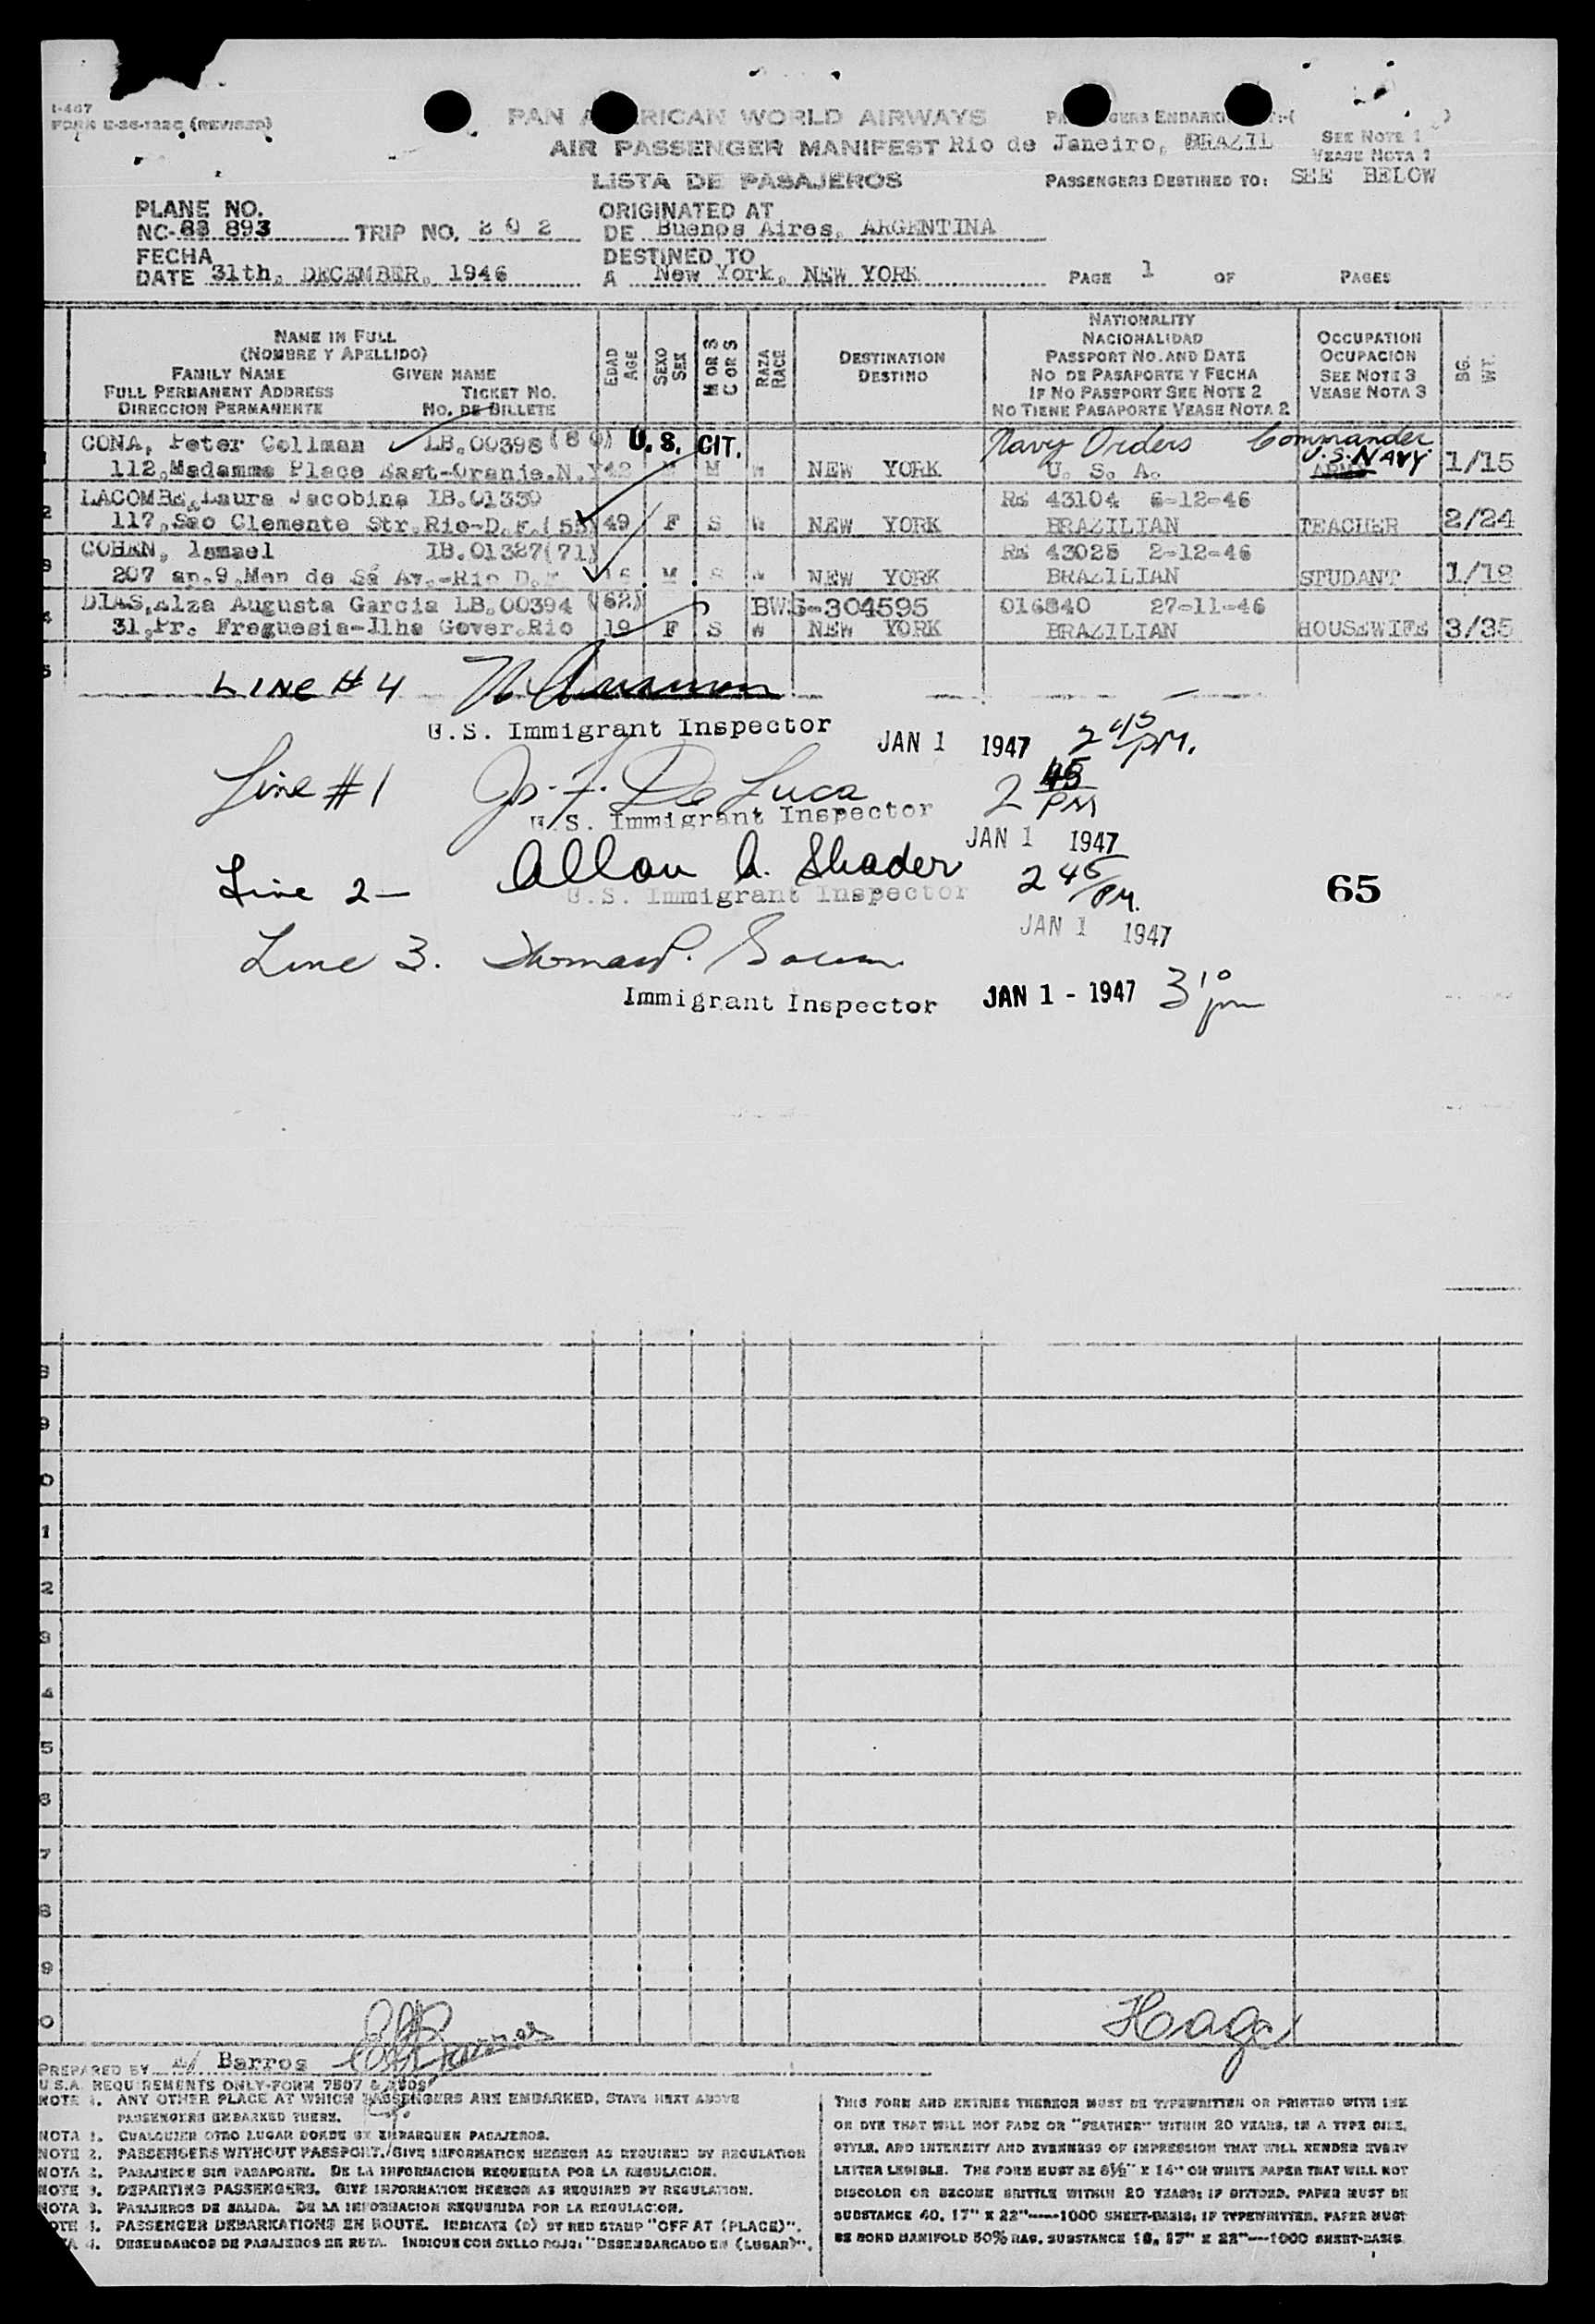 I-467
FORM E-36-122C (REVISED)
PAN AMERICAN WORLD AIRWAYS
AIR PASSENGER MANIFEST
LISTA DE PASAJEROS
Rio de Janeiro, BRAZIL
SEE NOTE 1
VEASE NOTA 1
PASSENGERS DESTINED TO: SEE BELOW
PLANE NO.
NC-88 893 TRIP NO. 202
ORIGINATED AT
DE Buenos Aires, ARGENTINA
FECHA
DATE 31th, DECEMBER, 1946
DESTINED TO
A New York, NEW YORK
PAGE 1 OF PAGES
NAME IN FULL
(NOMBRE Y APELLIDO)
FAMILY NAME GIVEN NAME
FULL PERMANENT ADDRESS TICKET NO.
DIRECCION PERMANENTE NO. DE BILLETE
EDAD AGE
SEXO SEX
M OR S C OR S
RAZA RACE
DESTINATION
DESTINO
NATIONALITY
NACIONALIDAD
PASSPORT NO. AND DATE
NO DE PASAPORTE Y FECHA
IF NO PASSPORT SEE NOTE 2
NO TIENE PASAPORTE VEASE NOTA 2
OCCUPATION
OCUPACION
SEE NOTE 3
VEASE NOTA 3
BG. WT.
CONA, Peter Collman LB.00398 (80) U.S. CIT. Navy Orders Commander
112, Madamme Place East-Oranje.N.Y 42 M M W NEW YORK U. S. A. U.S. NAVY 1/15
2 LACOMBE, Laura Jacobina IB.01330 RE 43104 6-12-46
117, Sao Clemente Str.Rio-D.F.(55) 49 F S W NEW YORK BRAZILIAN TEACHER 2/24
COHEN, Ismael IB.01327(71) RE 43025 2-12-46
207 ap.9, Men de Sá Av.-Rio D.F 16 M S W NEW YORK BRAZILIAN STUDANT 1/18
DIAS, Alza Augusta Garcia LB.00394 (62) BWS-304595 016840 27-11-46
31, Pr. Freguesia-Ilha Gover.Rio 19 F S W NEW YORK BRAZILIAN HOUSEWIFE 3/35
LINE # 4
U.S. Immigrant Inspector JAN 1 1947 2 45 PM.
Line # 1 Jo. F. De Luca 2 45 PM
U.S. Immigrant Inspector
JAN 1 1947
Line 2 - Allan A. Shader 2 45 PM.
U.S. Immigrant Inspector
65
JAN 1 1947
Line 3.
Immigrant Inspector JAN 1 - 1947 3 10 pm
9
0
1
2
3
4
5
6
7
8
9
0
Hage
PREPARED BY Barros
U.S.A. REQUIREMENTS ONLY-FORM 7507 & 7509
NOTE 1. ANY OTHER PLACE AT WHICH PASSENGERS ARE EMBARKED, STATE NEXT ABOVE
PASSENGERS EMBARKED THERE.
NOTA 1. CUALQUIER OTRO LUGAR DONDE SE EMBARQUEN PASAJEROS.
NOTE 2. PASSENGERS WITHOUT PASSPORT./GIVE INFORMATION HEREON AS REQUIRED BY REGULATION
NOTA 2. PASAJEROS SIN PASAPORTE. DE LA INFORMACION REQUERIDA POR LA REGULACION.
NOTE 3. DEPARTING PASSENGERS. GIVE INFORMATION HEREON AS REQUIRED BY REGULATION.
NOTA 3. PASAJEROS DE SALIDA. DE LA INFORMACION REQUERIDA POR LA REGULACION.
NOTE 4. PASSENGER DEBARKATIONS EN ROUTE. INDICATE (D) BY RED STAMP "OFF AT (PLACE)".
NOTA 4. DESEMBARCOS DE PASAJEROS EN RUTA. INDIQUE CON SELLO ROJO: "DESEMBARCADO EN (LUGAR)".
THIS FORM AND ENTRIES THEREON MUST BE TYPEWRITTEN OR PRINTED WITH INK
OR DYE THAT WILL NOT FADE OR "FEATHER" WITHIN 20 YEARS, IN A TYPE SIZE,
STYLE, AND INTENSITY AND EVENNESS OF IMPRESSION THAT WILL RENDER EVERY
LETTER LEGIBLE. THE FORM MUST BE 8½" X 14" ON WHITE PAPER THAT WILL NOT
DISCOLOR OR BECOME BRITTLE WITHIN 20 YEARS; IF DITTOED, PAPER MUST BE
SUBSTANCE 40, 17" X 22"----1000 SHEET-BASIS; IF TYPEWRITTEN, PAPER MUST
BE BOND MANIFOLD 50% RAG, SUBSTANCE 18, 17" X 22"---1000 SHEET-BASIS